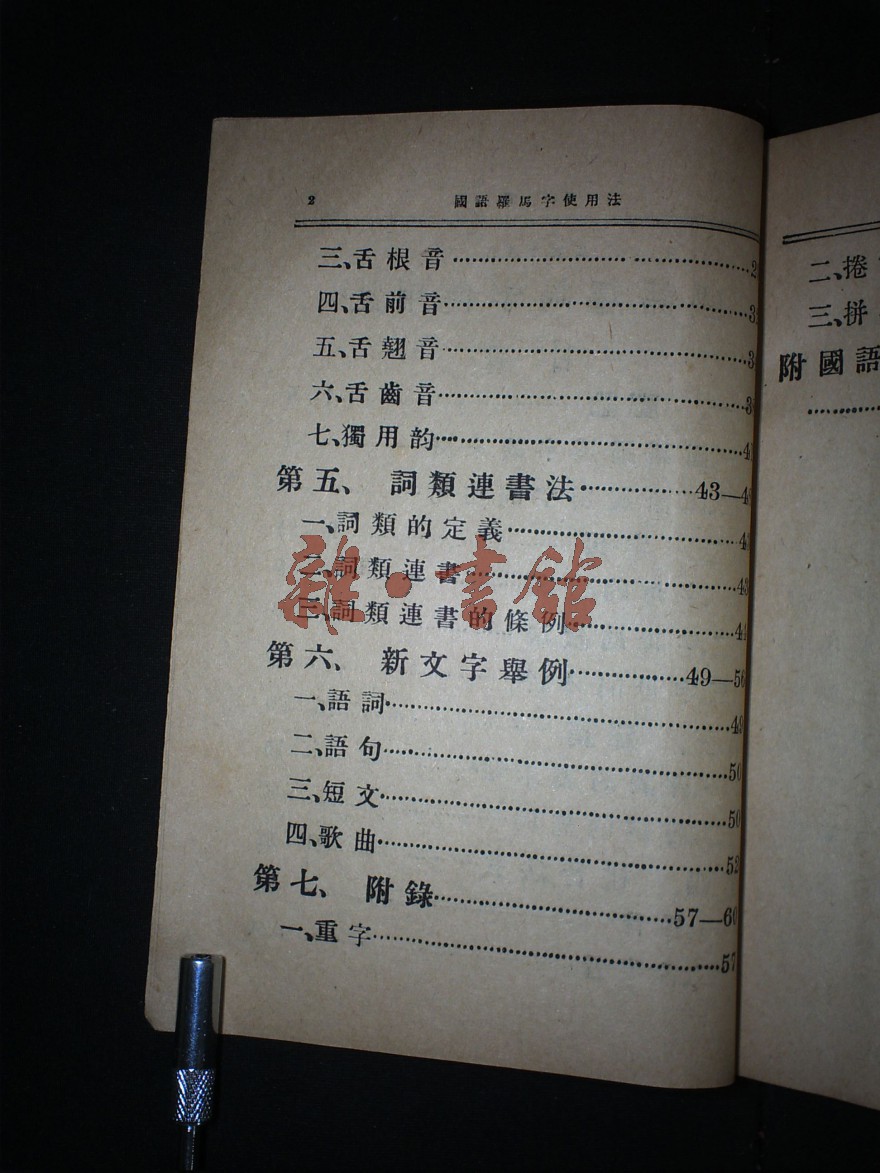 2 國語羅馬字使用法
三、舌根音……2
四、舌前音……3
五、舌翹音……3
六、舌齒音……3
七、獨用韵……4
第五、 詞類連書法……43—4
一、詞類的定義……4
二、詞類連書……43
三、詞類連書的條例……44
第六、 新文字舉例……49—56
一、語詞……49
二、語句……50
三、短文……50
四、歌曲……52
第七、 附錄……57—60
一、重字……57
二、捲
三、拼
附國語
……
雜·書館